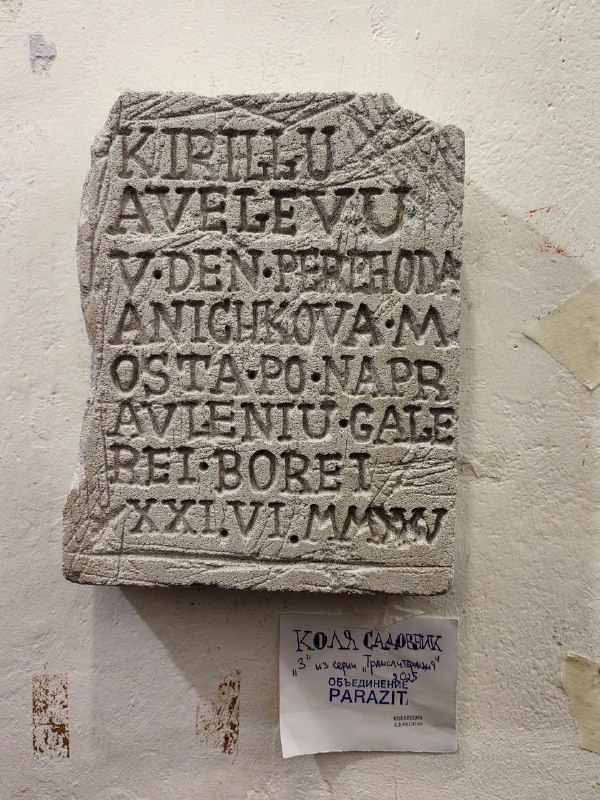 KIRILLU
AVELEVU
V·DEN·PEREHODA
ANICHKOVA·M
OSTA·PO·NAPR
AVLENIU·GALE
REI·BOREI
XXI.VI.MMXXV
КОЛЯ САДОВНИК
"3" из серии "Транслитерация"
2025
ОБЪЕДИНЕНИЕ
PARAZIT
КОЛЛЕКЦИЯ
К.В.АВЕЛЕВА